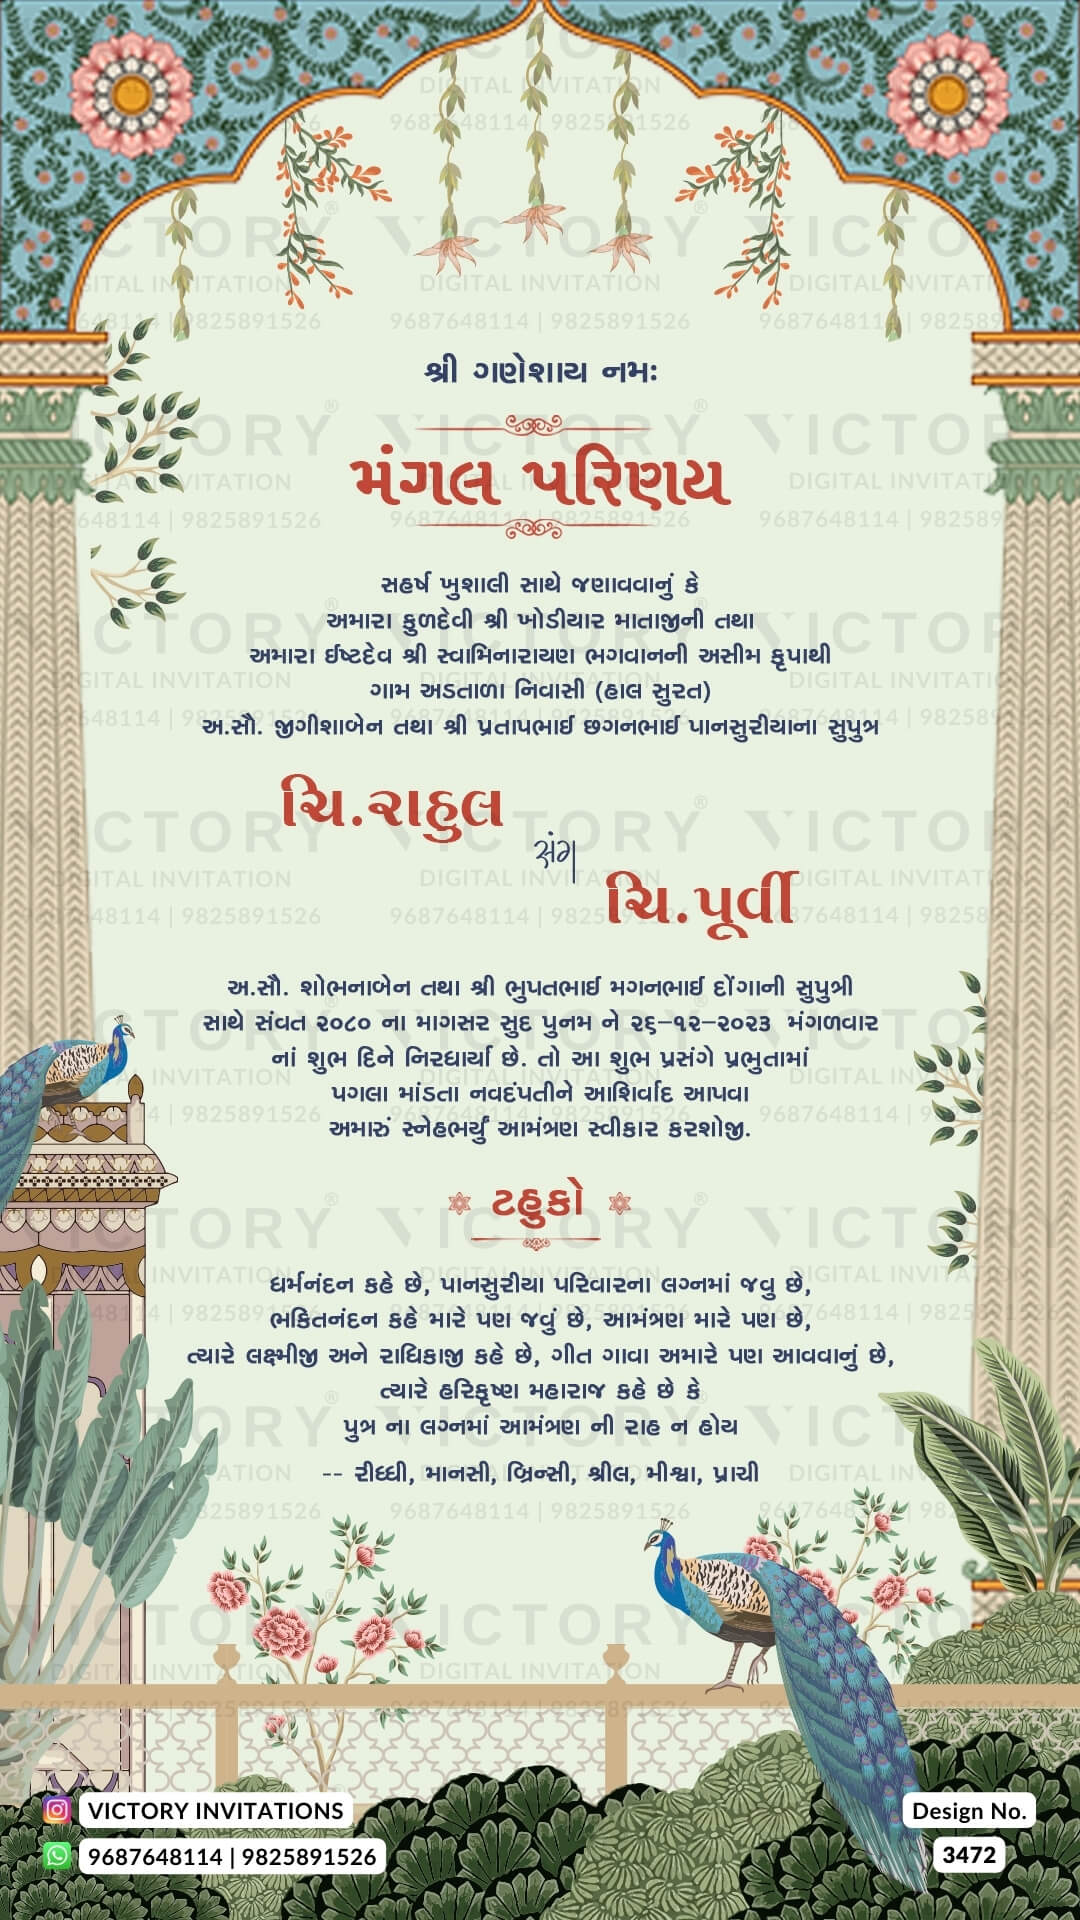 શ્રી ગણેશાય નમઃ
મંગલ પરિણય
સહર્ષ ખુશાલી સાથે જણાવવાનું કે
અમારા કુળદેવી શ્રી ખોડીયાર માતાજીની તથા
અમારા ઈષ્ટદેવ શ્રી સ્વામિનારાયણ ભગવાનની અસીમ કૃપાથી
ગામ અડતાળા નિવાસી (હાલ સુરત)
અ.સૌ. જીગીશાબેન તથા શ્રી પ્રતાપભાઈ છગનભાઈ પાનસુરીયાના સુપુત્ર
ચિ.રાહુલ
સંગ
ચિ.પૂર્વી
અ.સૌ. શોભનાબેન તથા શ્રી ભુપતભાઈ મગનભાઈ દોંગાની સુપુત્રી
સાથે સંવત ૨૦૮૦ ના માગસર સુદ પુનમ ને ૨૬–૧૨–૨૦૨૩ મંગળવાર
નાં શુભ દિને નિરધાર્યા છે. તો આ શુભ પ્રસંગે પ્રભુતામાં
પગલા માંડતા નવદંપતીને આશિર્વાદ આપવા
અમારું સ્નેહભર્યું આમંત્રણ સ્વીકાર કરશોજી.
ટહુકો
ધર્મનંદન કહે છે, પાનસુરીયા પરિવારના લગ્નમાં જવુ છે,
ભકિતનંદન કહે મારે પણ જવું છે, આમંત્રણ મારે પણ છે,
ત્યારે લક્ષ્મીજી અને રાધિકાજી કહે છે, ગીત ગાવા અમારે પણ આવવાનું છે,
ત્યારે હરિકૃષ્ણ મહારાજ કહે છે કે
પુત્ર ના લગ્નમાં આમંત્રણ ની રાહ ન હોય
-- રીધ્ધી, માનસી, બ્રિન્સી, શ્રીલ, મીશ્વા, પ્રાચી
VICTORY INVITATIONS
9687648114 | 9825891526
Design No.
3472
VICTORY
DIGITAL INVITATION
9687648114 | 9825891526